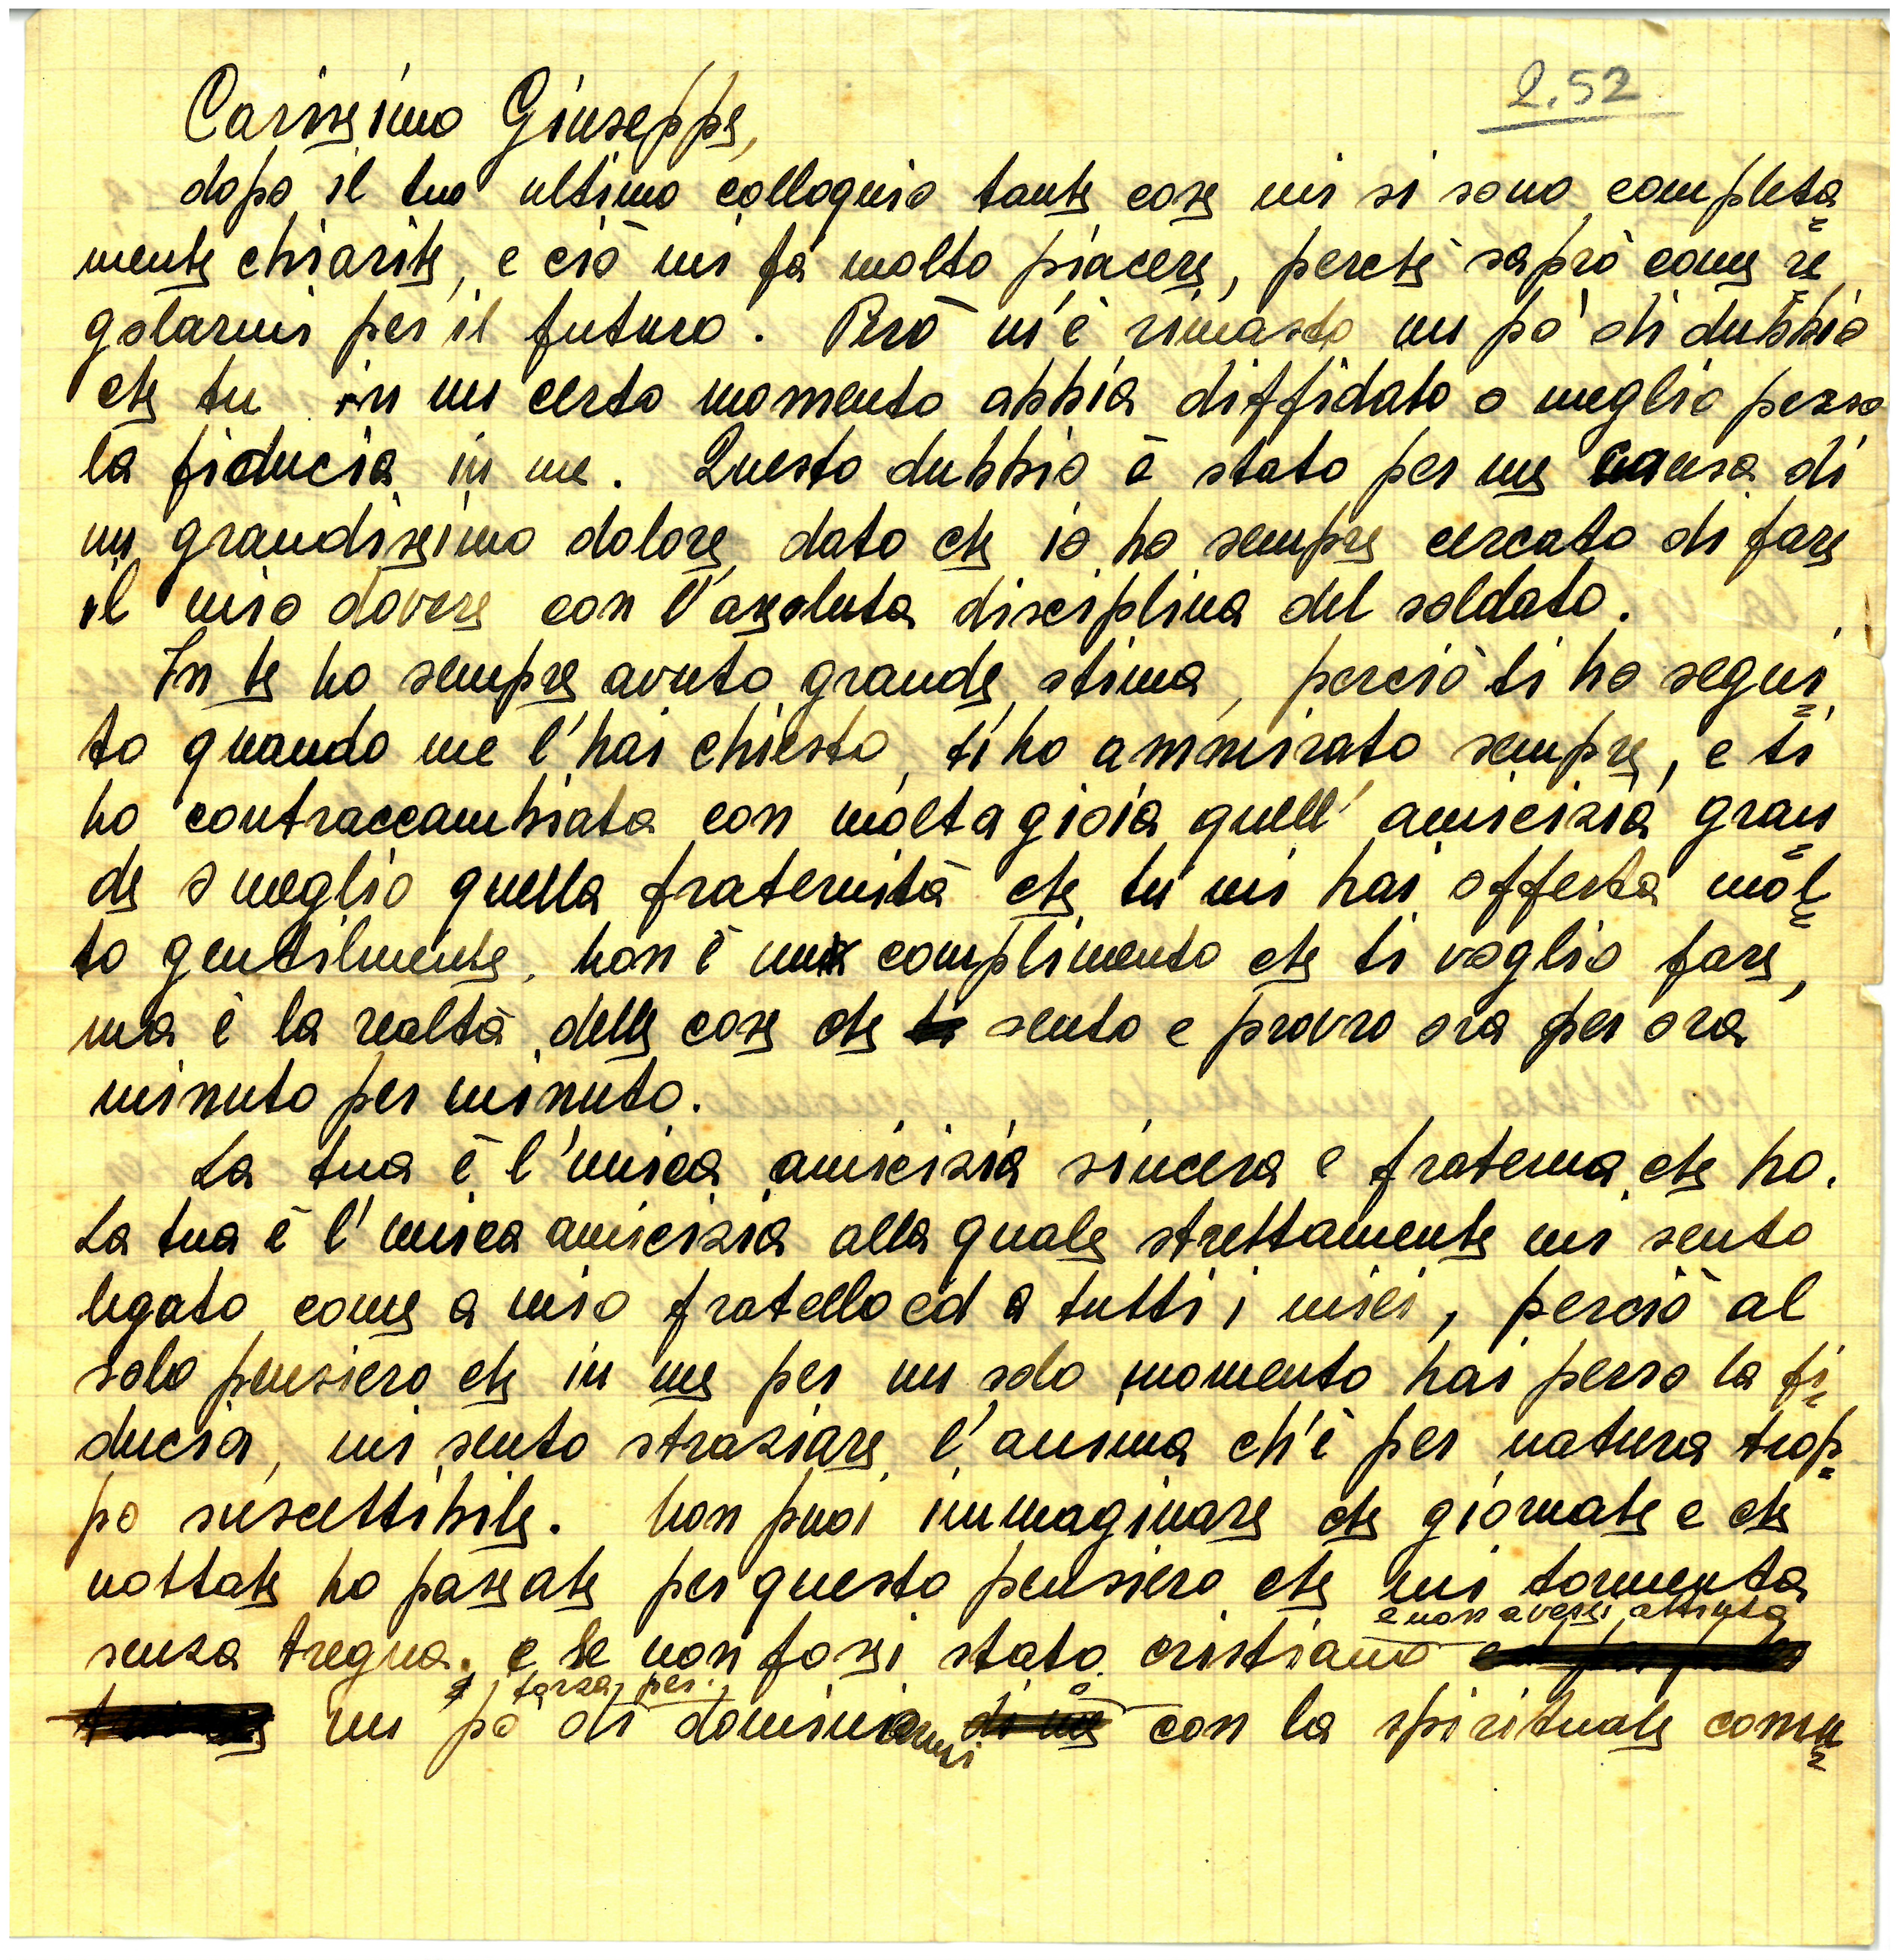 2.52
Carissimo Giuseppe,
dopo il tuo ultimo colloquio tante cose mi si sono completa=
mente chiarite, e ciò mi fà molto piacere, perchè saprò come re=
golarmi per il futuro. Però m'è rimasto un pò di dubbio
che tu in un certo momento abbia diffidato o meglio perso
la fiducia in me. Questo dubbio è stato per me causa di
un grandissimo dolore dato che io ho sempre cercato di fare
il mio dovere con l'assoluta disciplina del soldato.
In te ho sempre avuto grande stima, perciò ti ho segui=
to quando me l'hai chiesto, ti ho ammirato sempre, e ti
ho contraccambiata con molta gioia quell'amicizia gran=
de o meglio quella fraternità che tu mi hai offerta mol=
to gentilmente, non è un complimento che ti voglio fare,
ma è la realtà delle cose che sento e provro ora per ora
minuto per minuto.
La tua è l'unica amicizia sincera e fraterna che ho.
La tua è l'unica amicizia alla quale strettamente mi sento
legato come a mio fratello ed a tutti i miei, perciò al
solo pensiero che in me per un solo momento hai perso la fi=
ducia, mi sento straziare l'anima ch'è per natura trop=
po suscettibile. Non puoi immaginare che giornate e che
nottate ho passate per questo pensiero che mi tormenta
e non avessi attinto
senza tregua. e se non fossi stato cristiano
forza per
un pò di dominiarmi con la spirituale comu=